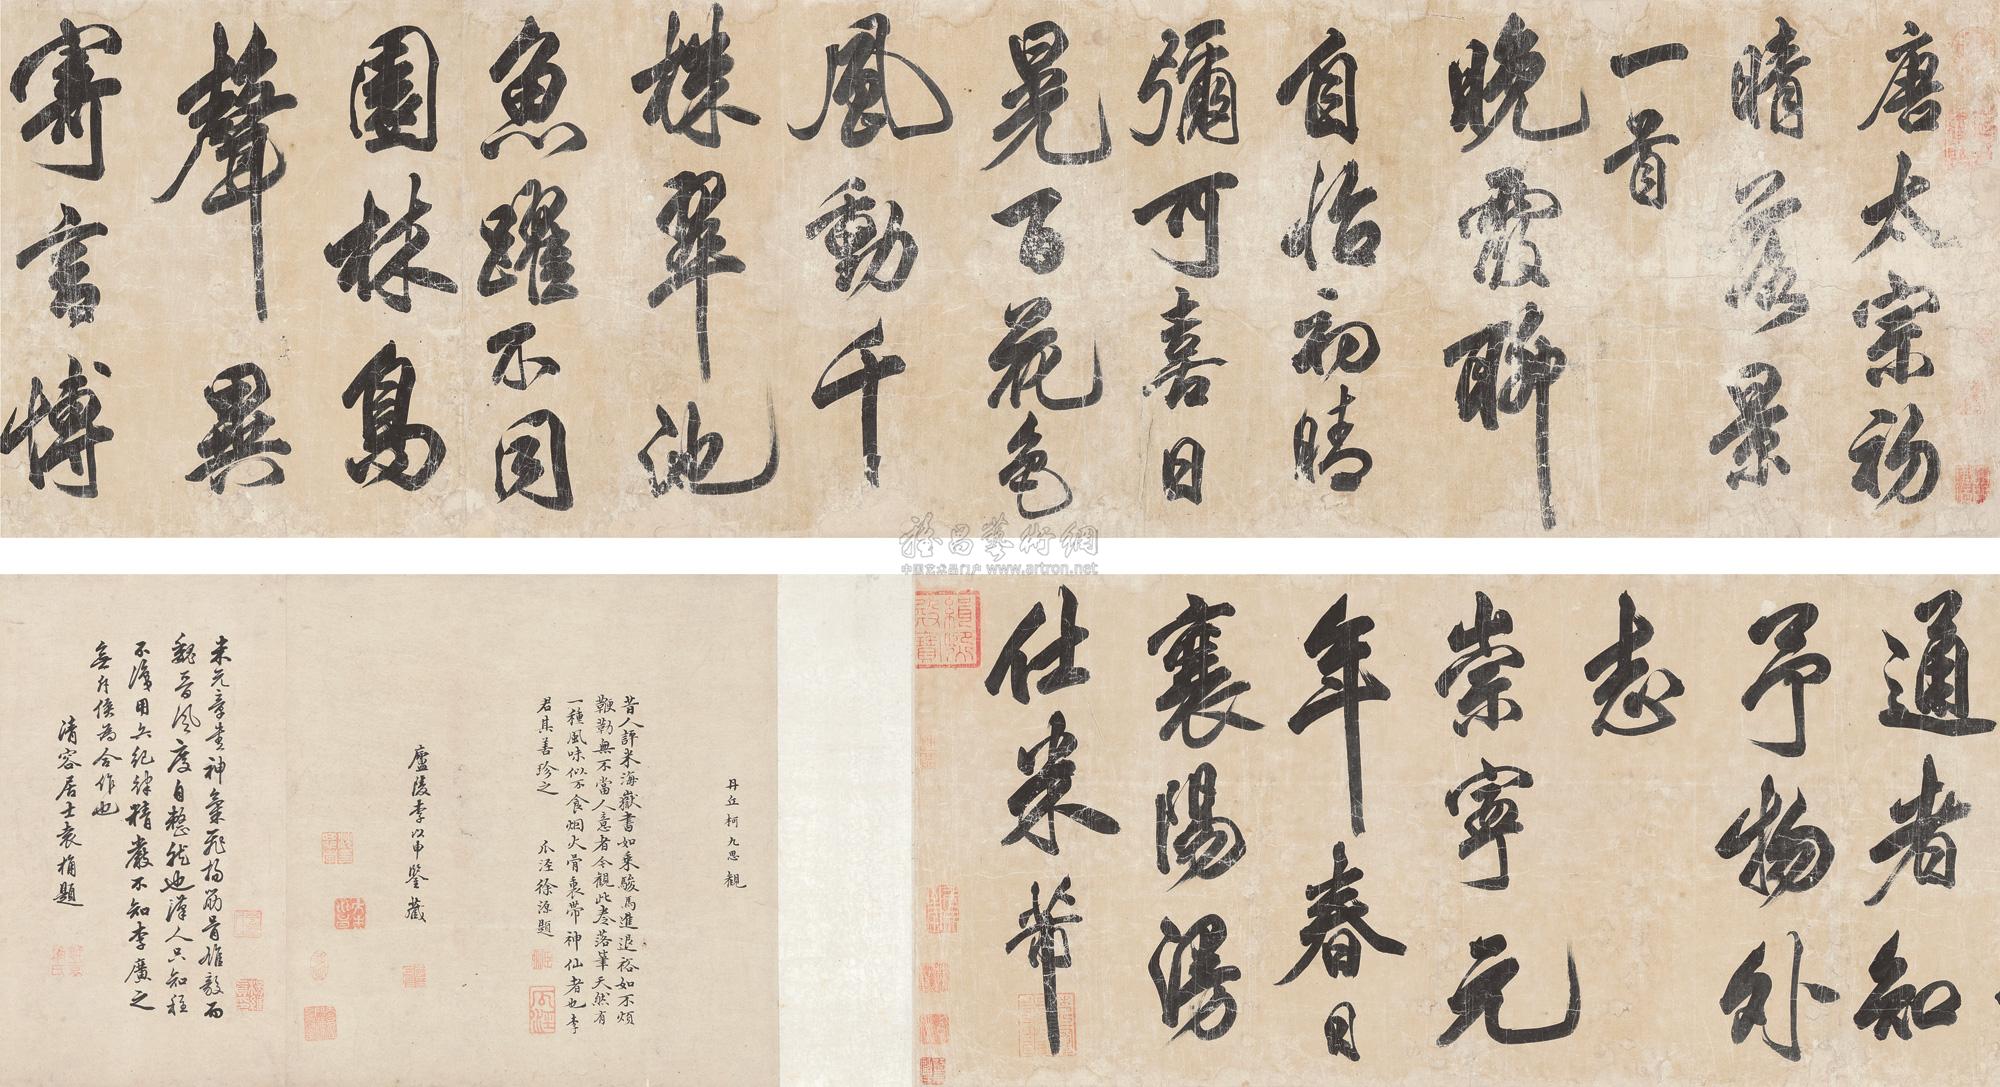 唐太宗初
晴落景
一首
晚霞聊
自怡初晴
彌可喜日
晃百花色
風動千
株翠池
魚躍不同
園林鳥
聲異
寄言博
通者知
予物外
志
崇寧元
年春日
襄陽漫
仕米芾
丹丘柯九思觀
昔人評米海嶽書如乘駿馬進退裕如不煩
鞭勒無不當人意者今觀此卷落筆天然有
一種風味似不食烟火骨裏帶神仙者也李
君其善珍之
瓜涇徐源題
廬陵李以申鑒藏
米元章書神氣飛揚筋骨雄毅而
魏晉風度自整然也漢人只知程
不識用兵紀律精嚴不知李廣之
無斥候為合作也
清容居士袁桷題
雅昌藝術網
中国艺术品门户 www.artron.net